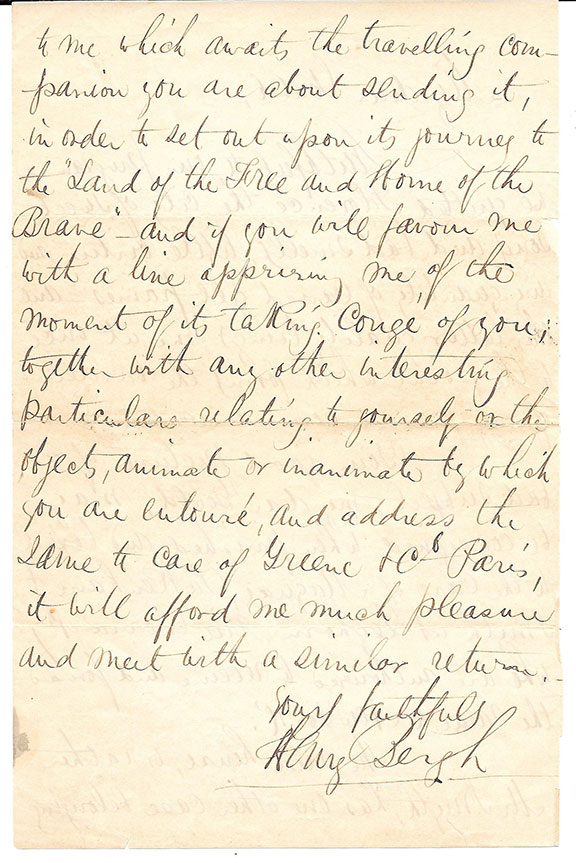 to me which awaits the travelling com-
panion you are about sending it,
in order to set out upon its journey to
the "Land of the Free and Home of the
Brave" - and if you will favour me
with a line apprizing me, of the
moment of its taking Conge of you,
together with any other interesting
particulars relating to yourself or the
objects, animate or inanimate by which
you are entouré, and address the
same to care of Greene & Co Paris,
it will afford me much pleasure
and meet with a similar return.-
Yours faithfully